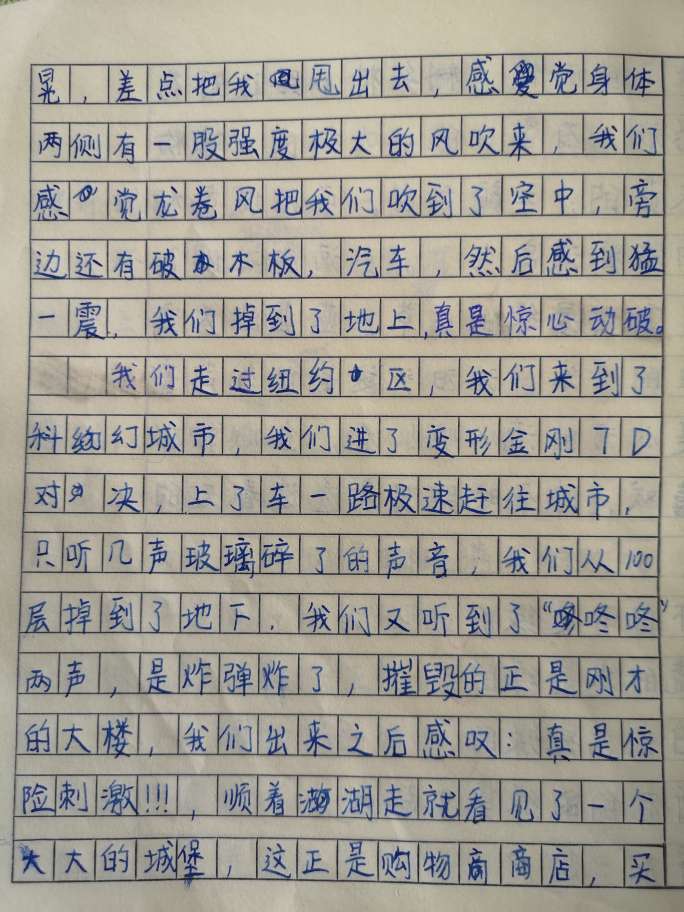 晃，差点把我甩出去，感觉身体
两侧有一股强度极大的风吹来，我们
感觉龙卷风把我们吹到了空中，旁
边还有破木板，汽车，然后感到猛
一震，我们掉到了地上，真是惊心动破。
我们走过纽约区，我们来到了
科幻城市，我们进了变形金刚7D
对决，上了车一路极速赶往城市，
只听几声玻璃碎了的声音，我们从100
层掉到了地下，我们又听到了“咚咚”
两声，是炸弹炸了，摧毁的正是刚才
的大楼，我们出来之后感叹：真是惊
险刺激!!!，顺着湖走就看见了一个
大大的城堡，这正是购物商店，买